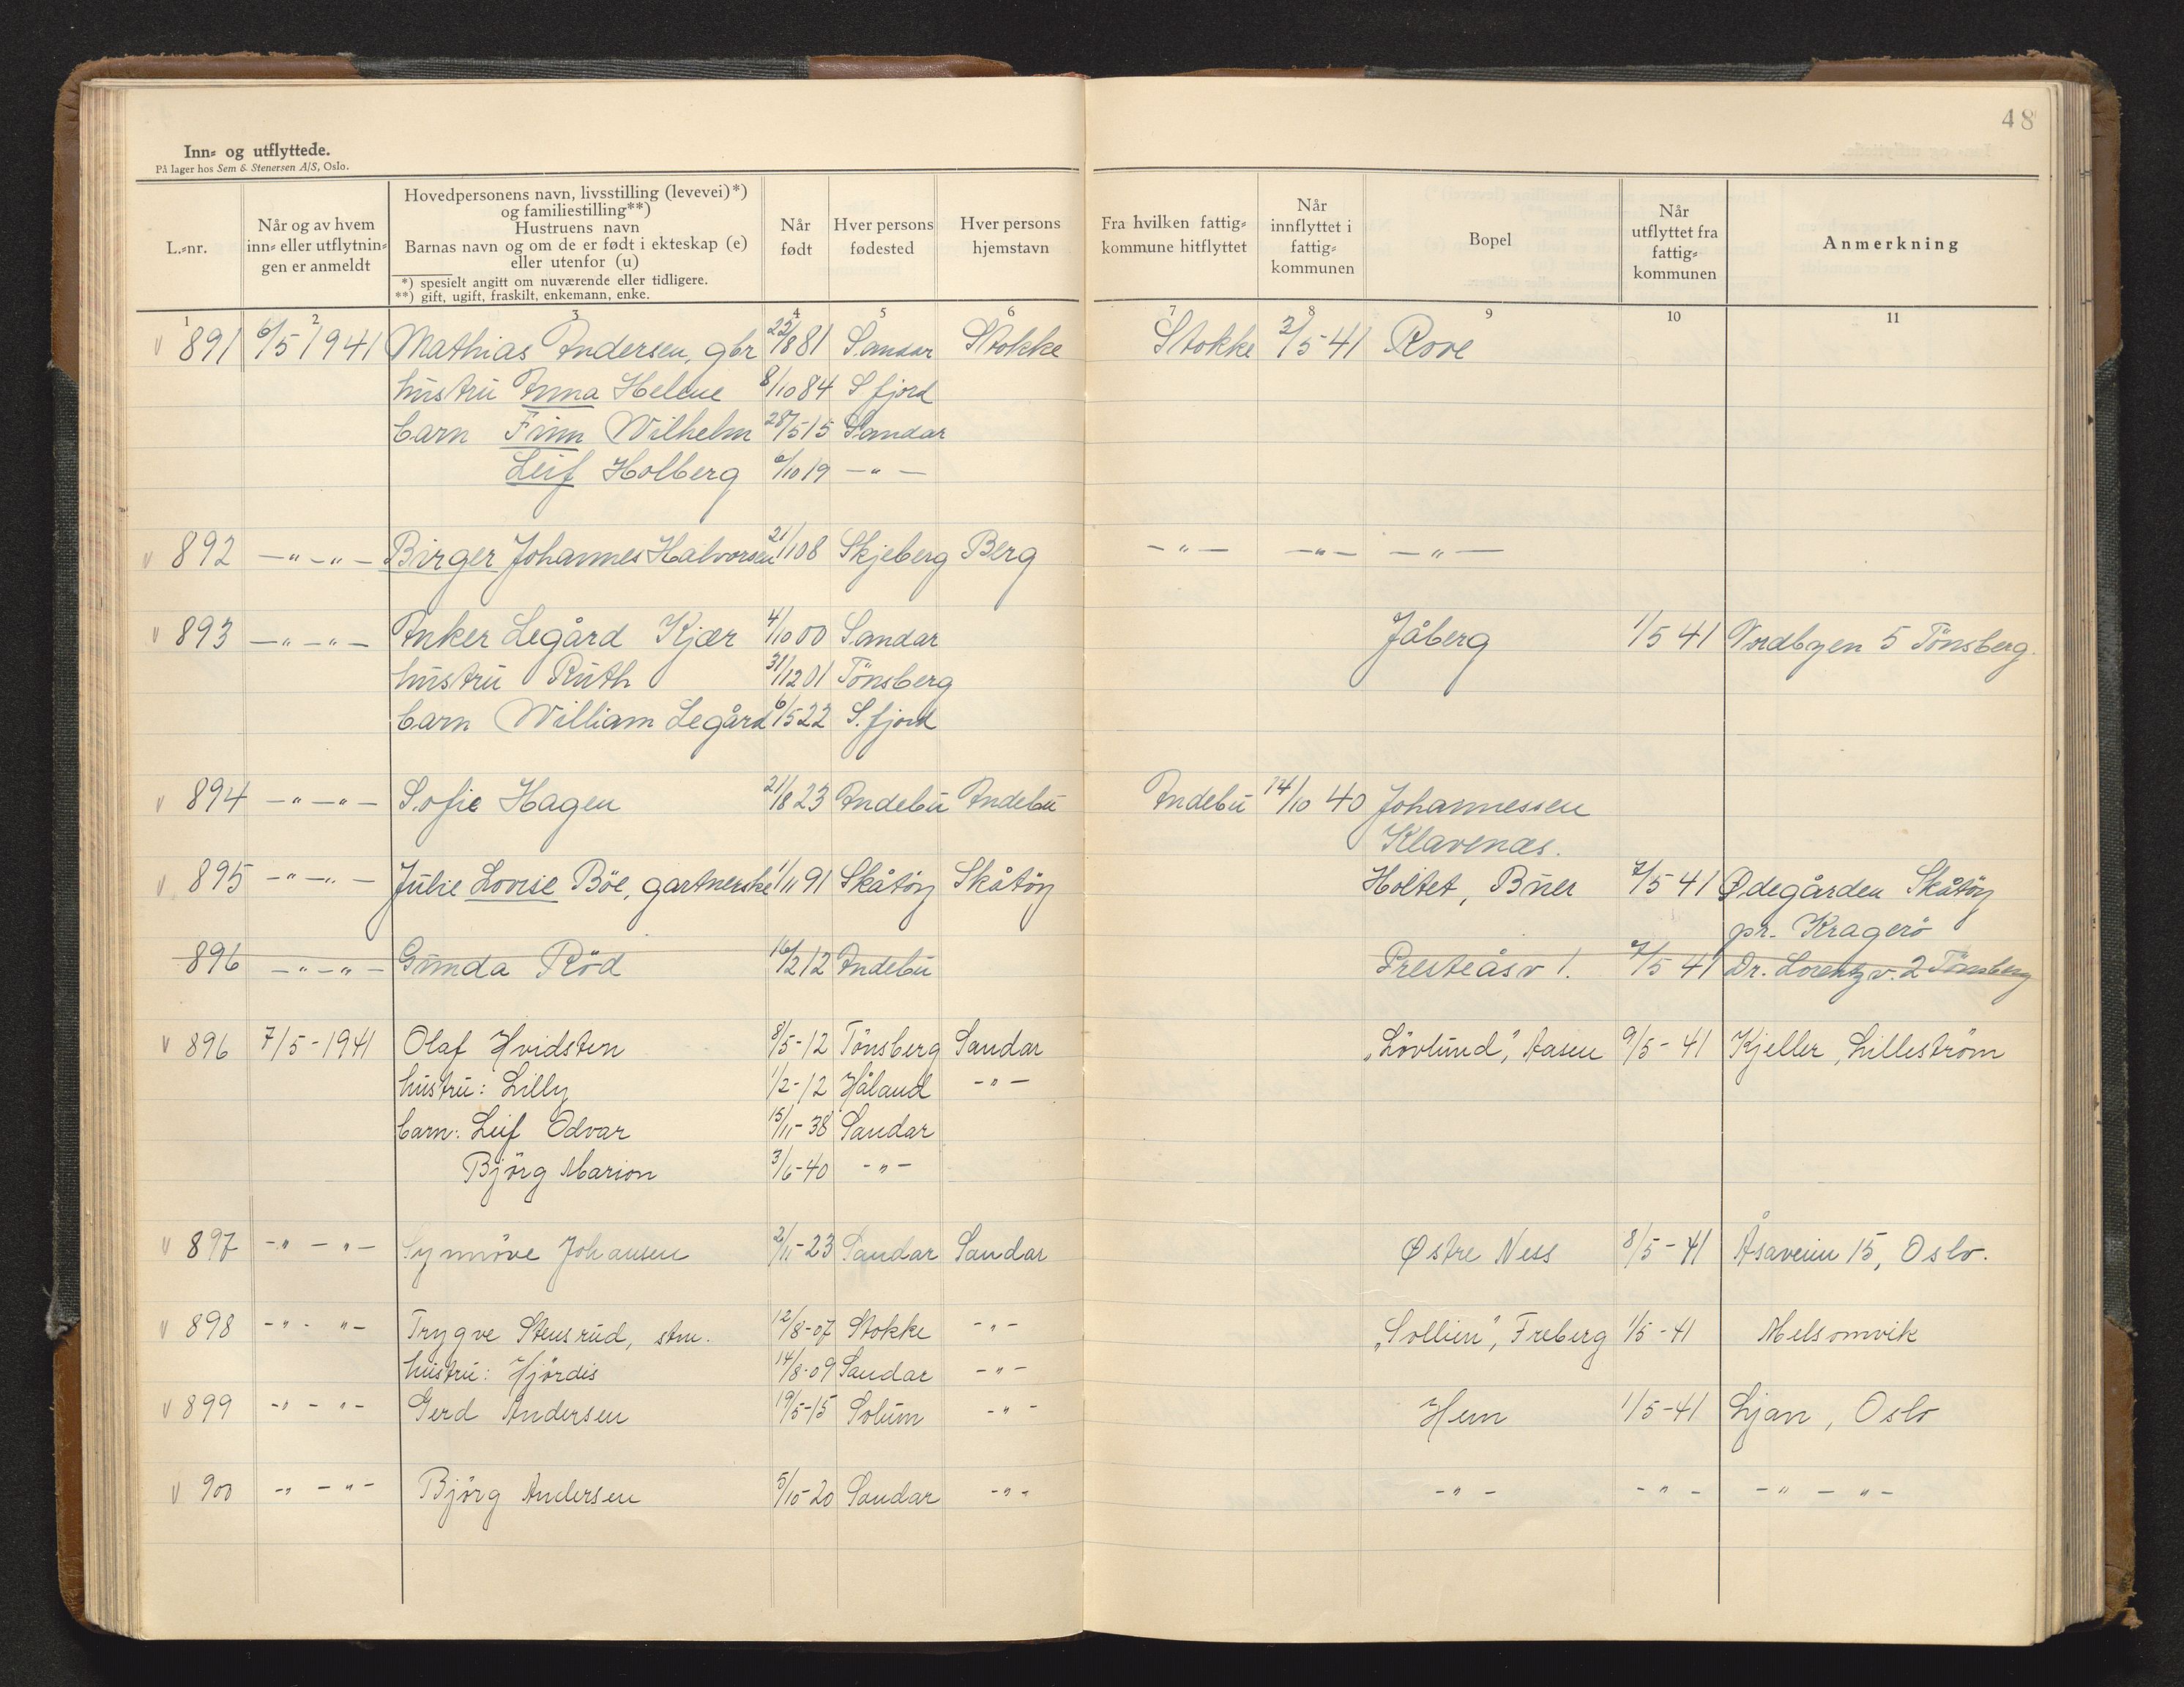 48
Inn- og utflyttede.
På lager hos Sem & Stenersen A/S, Oslo.
L.-nr.
Når og av hvem inn- eller utflytnin-gen er anmeldt
Hovedpersonens navn, livsstilling (levevei)*)
og familiestilling**)
Hustruens navn
Barnas navn og om de er født i ekteskap (e)
eller utenfor (u)
*) spesielt angitt om nuværende eller tidligere.
**) gift, ugift, fraskilt, enkemann, enke.
Når født
Hver persons fødested
Hver persons hjemstavn
Fra hvilken fattig-kommune hitflyttet
Når innflyttet i fattig-kommunen
Bopel
Når utflyttet fra fattig-kommunen
Anmerkning
1 2 3 4 5 6 7 8 9 10 11
v 891 6/5 1941 Mathias Andersen, gbr 22/8 81 Sandar Stokke Stokke 2/5-41 Rove
hustru Anna Helene 8/10 84 S fjord
barn Finn Wilhelm 28/5 15 Sandar
Leif Holberg 6/10 19 — " —
v 892 — " — " — Birger Johannes Halvorsen 21/1 08 Skjeberg Berg — " — — " — — " —
v 893 — " — " — Anker Legård Kjær 4/10 00 Sandar Jåberg 1/5 41 Nordbyen 5 Tönsberg.
hustru Ruth 31/12 01 Tönsberg
barn William Legård 6/5 22 S. fjord
v 894 — " — " — Sofie Hagen 21/8 23 Andebu Andebu Andebu 14/10 40 Johannessen
Klavenæs.
v 895 — " — " — Julie Lovise Böe, gartnerske 1/11 91 Skåtöy Skåtöy Holtet, Buer 7/5 41 Ødegården Skåtöy
pr. Kragerö
896 — " — " — Gunda Röd 16/2 12 Andebu Presteåsv 1. 7/5 41 Dr. Lorentz v. 2 Tönsberg
v 896 7/5-1941 Olaf Hvidsten 8/5-12 Tönsberg Sandar "Lövlund", Aasen 9/5-41 Kjeller, Lilleström
hustru: Lilly 1/2-12 Håland - " -
barn: Leif Odvar 15/11-38 Sandar
Björg Marion 3/6-40 - " -
v 897 - " - " - Synnöve Johansen 2/11-23 Sandar Sandar Østre Ness 8/5-41 Åsaveien 15, Oslo.
v 898 - " - " - Trygve Stensrud, stm. 12/8-07 Stokke - " - "Sollien", Freberg 1/5-41 Melsomvik
hustru: Hjördis 14/8-09 Sandar - " -
v 899 - " - " - Gerd Andersen 19/5-15 Solum - " - Hem 1/5-41 Ljan, Oslo
v 900 - " - " - Björg Andersen 5/10-20 Sandar - " - - " - - " - - " - " -